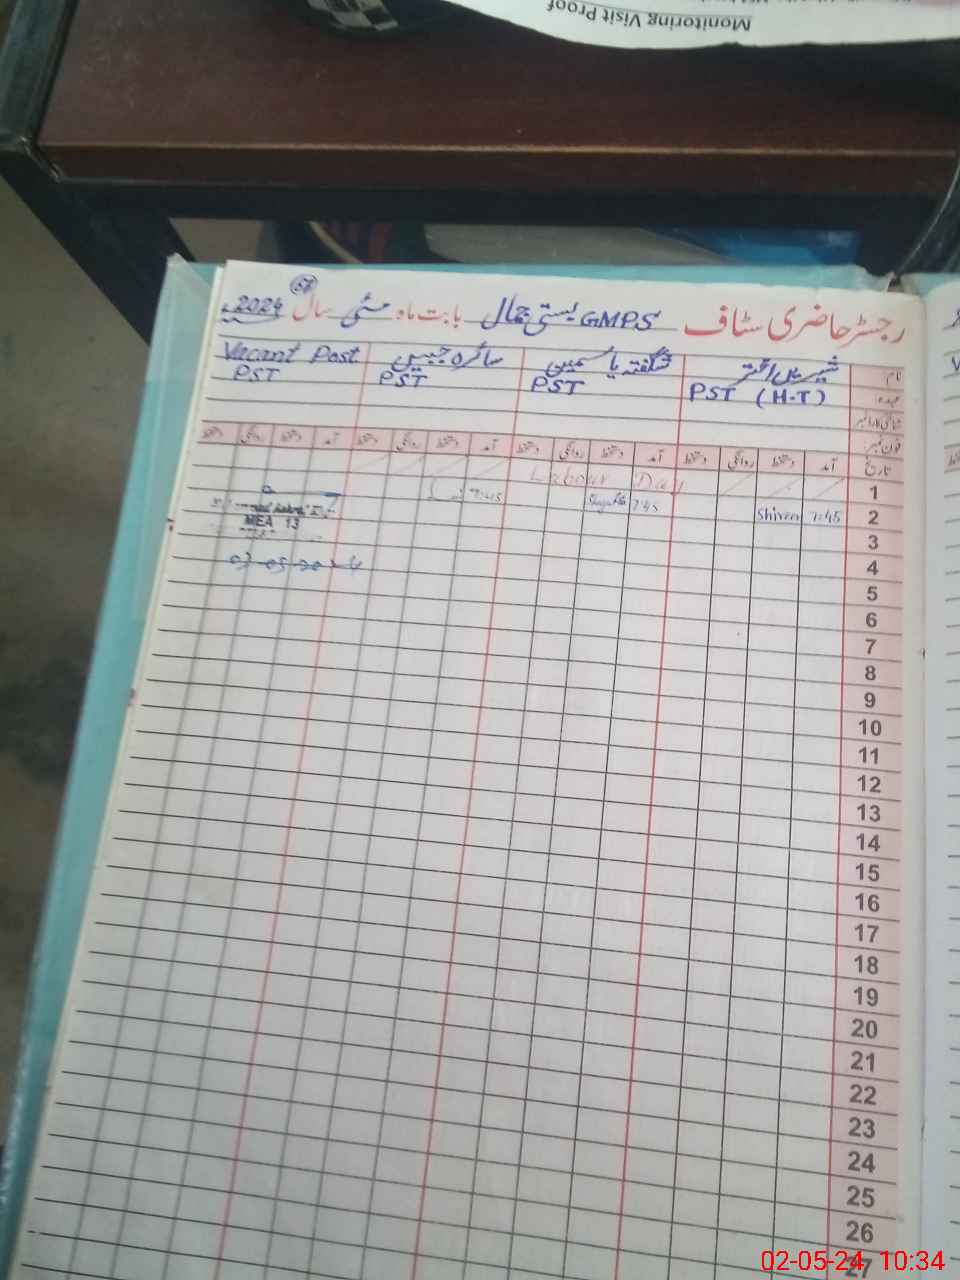 Monitoring Visit Proof
رجسٹر حاضری سٹاف GMPS بستی جمال بابت ماہ مئی سال 2024ء
نام شیریں اختر شگفتہ یاسمین سائرہ جبیں Vacant Post
عہدہ PST (H.T) PST PST PST
شناختی کارڈ نمبر
فون نمبر:
تاریخ آمد دستخط روانگی دستخط آمد دستخط روانگی دستخط آمد دستخط روانگی دستخط آمد دستخط روانگی دستخط
1 Labour Day
2 7:45 Shireen 7:45 Shagufta 7:45
MEA 13
3
4
5
6
7
8
9
10
11
12
13
14
15
16
17
18
19
20
21
22
23
24
25
26
27
02-05-24 10:34